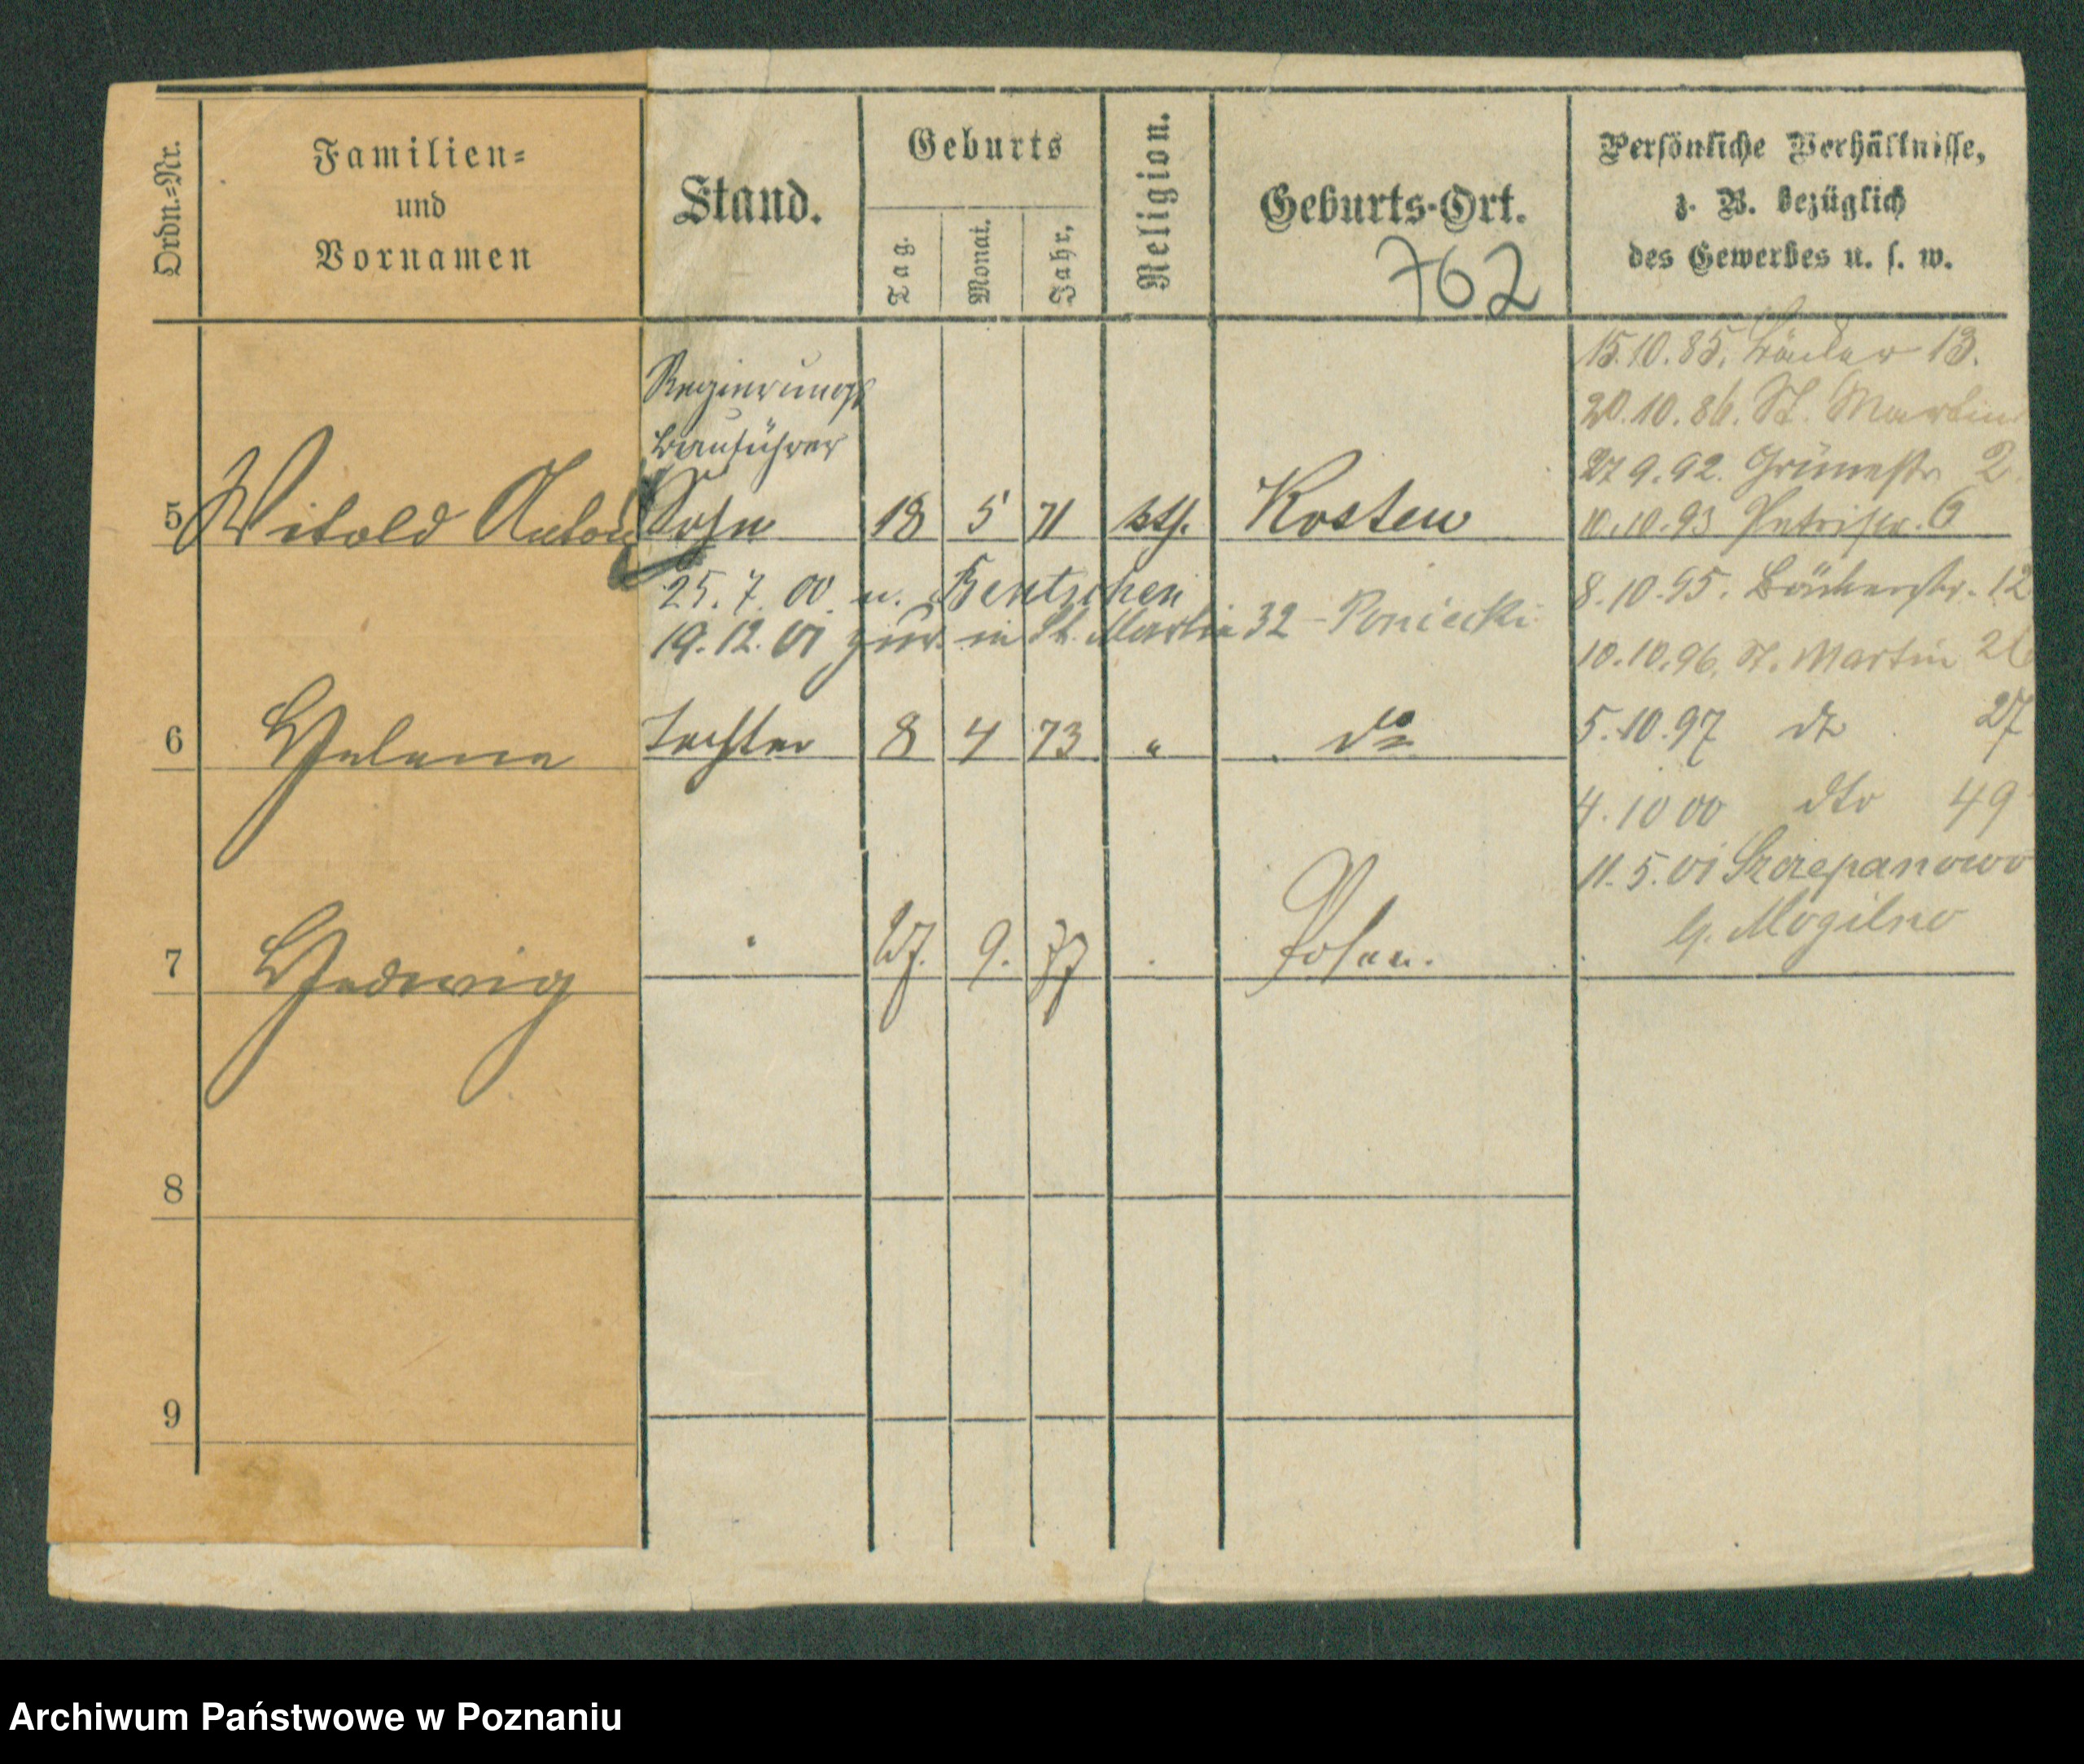 Ordn.=Nr.
Familien=
und
Vornamen
Stand.
Geburts
Tag.
Monat.
Jahr,
Religion.
Geburts-Ort.
762
Persönliche Verhältnisse,
z. B. bezüglich
des Gewerbes u. s. w.
15.10.85. 13.
20.10.86. St. Martin
27 9.92. Grünestr 2.
10.10.93 Petristr. 6
Regierungs
bauführer
5 Witold Anton Sohn 18 5 71 kth. Kosten
25. 7. 00. n. Bentschen
19. 12. 01 zur. in St. Martin 32 - Poniecki
8.10.95. Bäckerstr. 12
10.10.96. St. Martin 26
6 Helene Tochter 8 4 73 " do
5.10.97 do 27
4.10 00 dto 49
11.5.01 Szczepanowo
b. Mogilno
7 Hedwig 27. 9. 77 Posen.
8
9
Archiwum Państwowe w Poznaniu